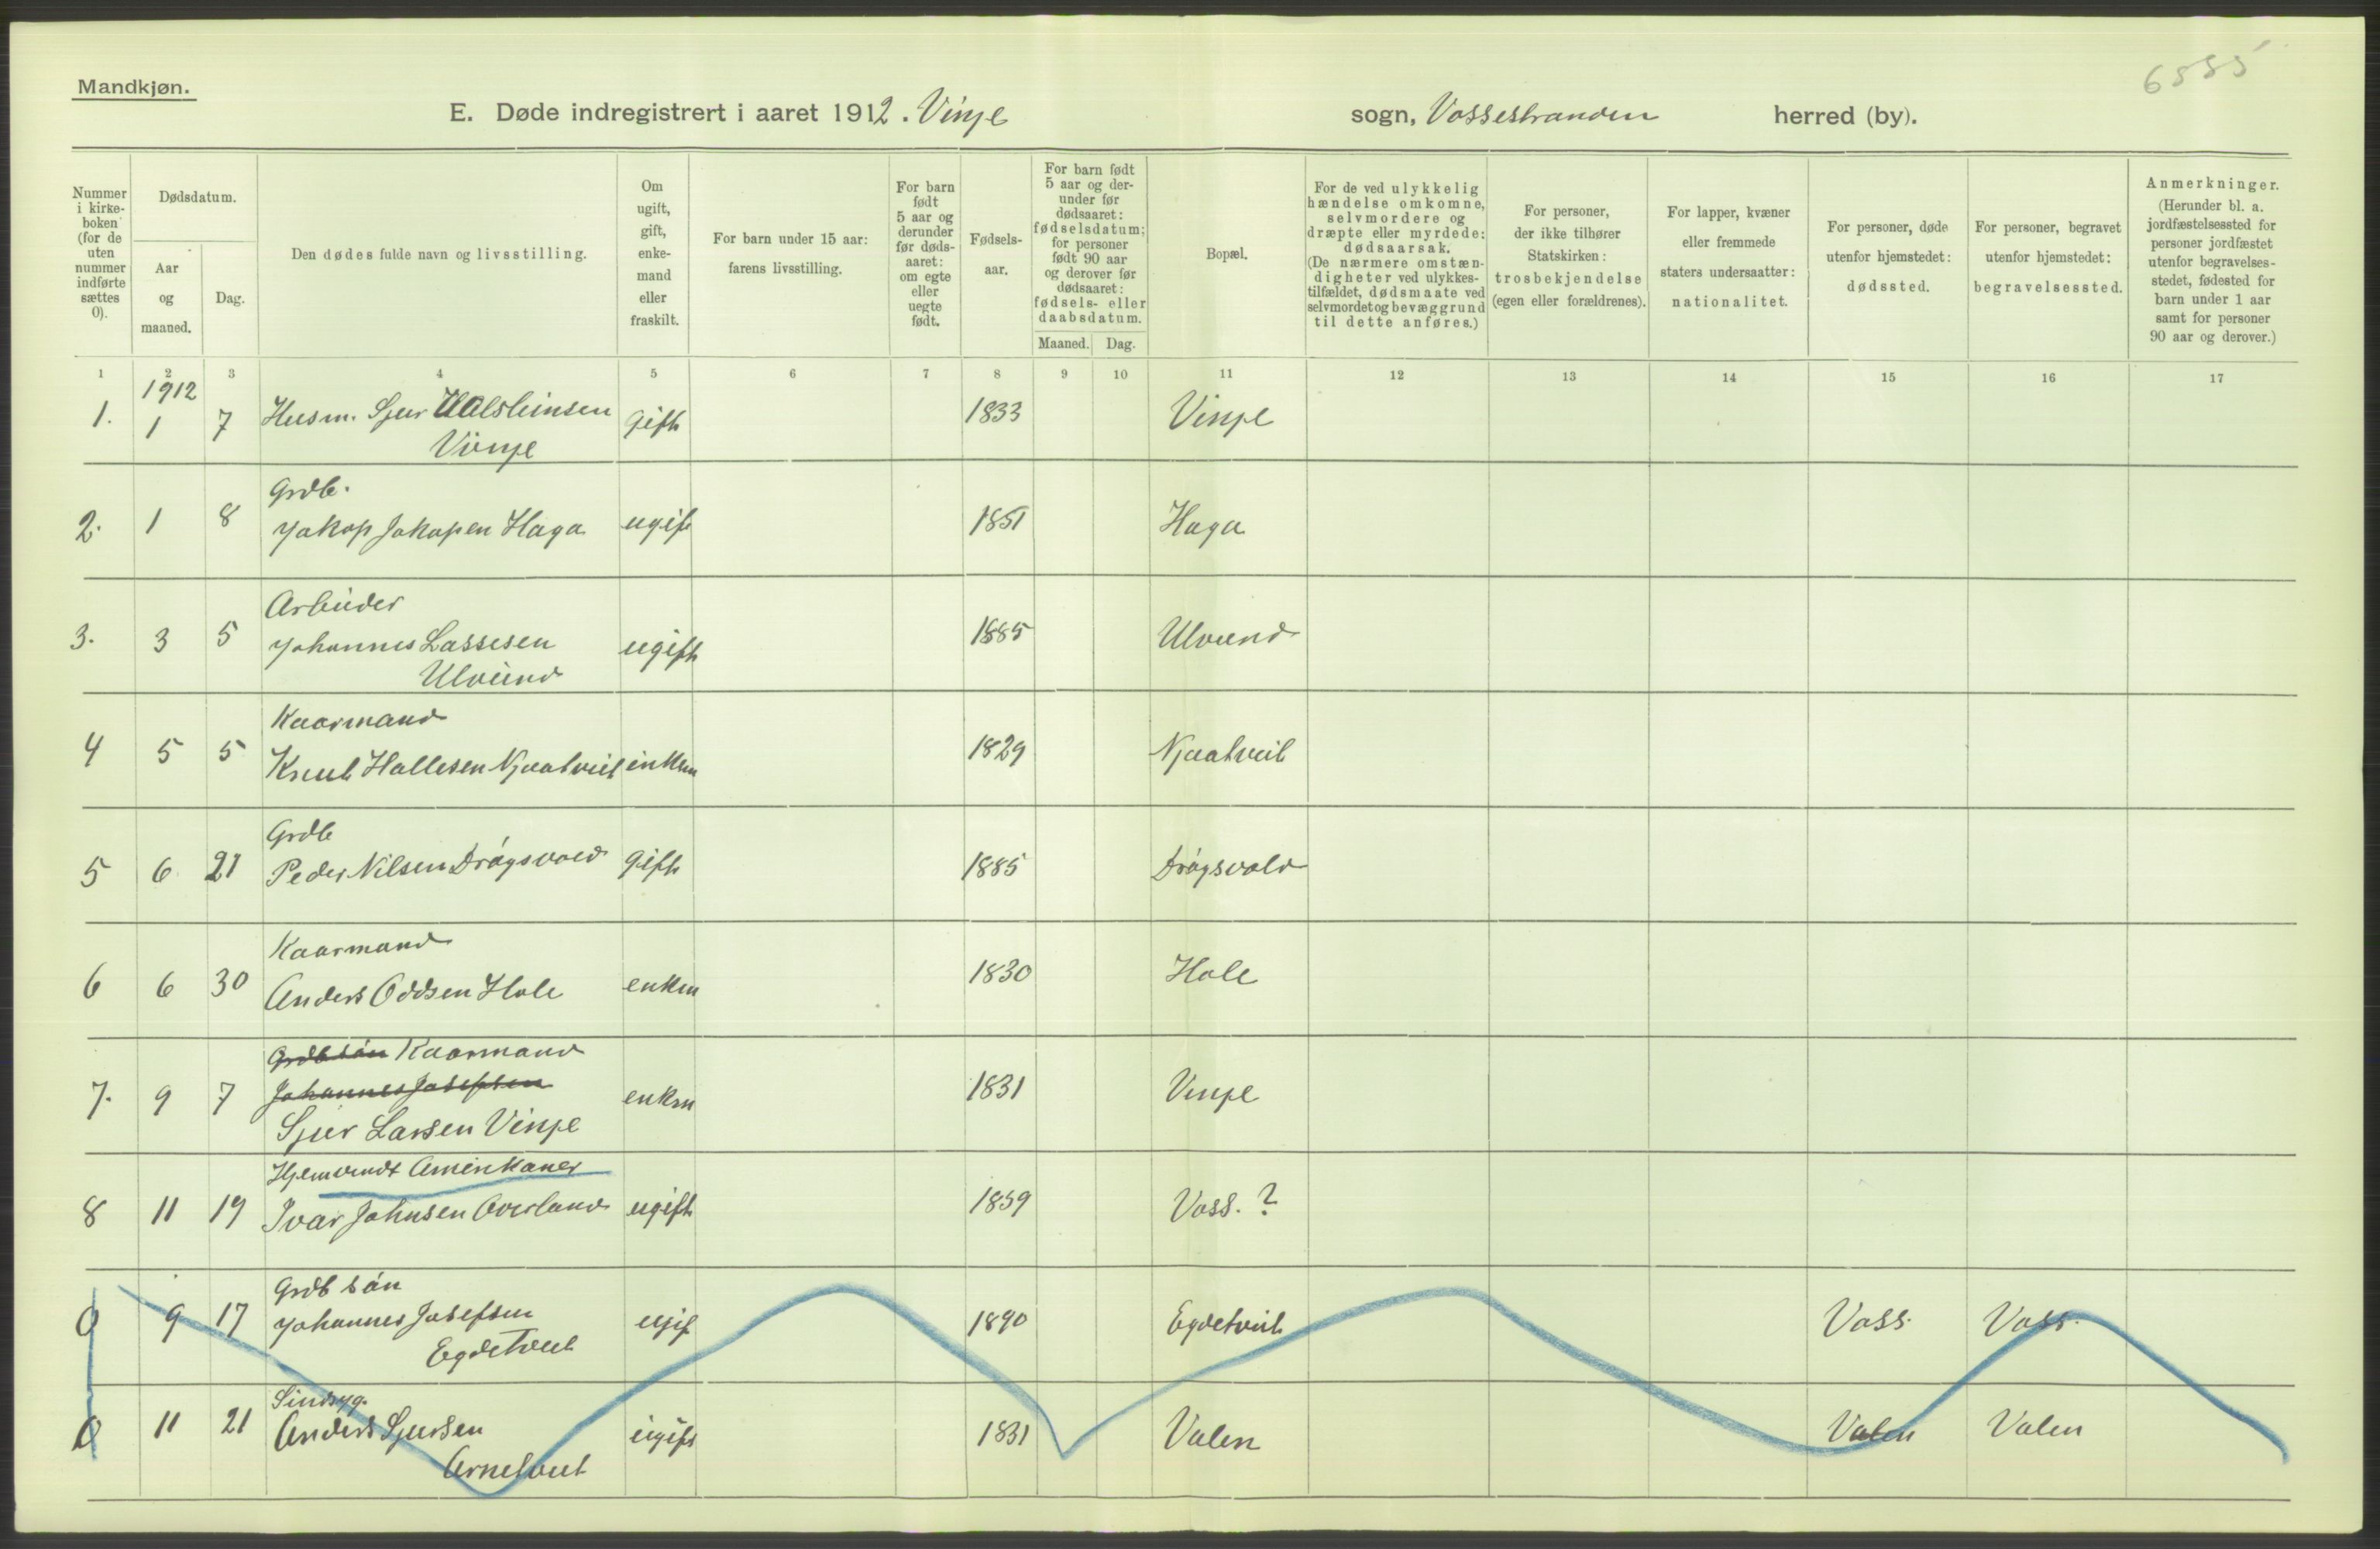 Mandkjøn.
6585
E. Døde indregistrert i aaret 1912. Vinje sogn, Vossestranden herred (by).
Nummer i kirke-boken (for de uten nummer indførte sættes 0).
Dødsdatum.
Aar og maaned.
Dag.
Den dødes fulde navn og livsstilling.
Om ugift, gift, enke-mand eller fraskilt.
For barn under 15 aar: farens livsstilling.
For barn født 5 aar og derunder før døds-aaret: om egte eller uegte født.
Fødsels-aar.
For barn født 5 aar og der-under før dødsaaret: fødselsdatum; for personer født 90 aar og derover før dødsaaret: fødsels- eller daabsdatum.
Maaned. Dag.
Bopæl.
For de ved ulykkelig hændelse omkomne, selvmordere og dræpte eller myrdede: dødsaarsak. (De nærmere omstæn-digheter ved ulykkes-tilfældet, dødsmaate ved selvmordet og bevæggrund til dette anføres.)
For personer, der ikke tilhører Statskirken: trosbekjendelse (egen eller forældrenes).
For lapper, kvæner eller fremmede staters undersaatter: nationalitet.
For personer, døde utenfor hjemstedet: dødssted.
For personer, begravet utenfor hjemstedet: begravelsessted.
Anmerkninger. (Herunder bl. a. jordfæstelsessted for personer jordfæstet utenfor begravelses-stedet, fødested for barn under 1 aar samt for personer 90 aar og derover.)
1 2 3 4 5 6 7 8 9 10 11 12 13 14 15 16 17
1912
1. 1 7 Husm. Sjur Halsteinsen gift 1833 Vinje
Vinje
Grdb.
2. 1 8 Jakop Jakopsen Haga ugift 1851 Haga
Arbeider
3. 3 5 Johannes Lassesen ugift 1885 Ulvund
Ulvund
Kaarmand
4 5 5 Knut Hallesen Njaatveit enkm 1829 Njaatveit
Grdb
5 6 21 Peder Nilsen Drøgsvold gift 1885 Drøgsvold
Kaarmand
6 6 30 Anders Oddsen Hole enkm 1830 Hole
Grdb søn Kaarmand
Johannes Josefsen
7. 9 7 Sjur Larsen Vinje enkm 1831 Vinje
Hjemvendt Amerikaner
8 11 19 Ivar Johnsen Overland ugift 1859 Voss. ?
Grdb søn
0 9 17 Johannes Josefsen ugift 1890 Egdetveit Voss. Voss.
Egdetveit
Sindsyg.
0 11 21 Anders Sjursen ugift 1831 Valen Valen Valen
Arnetveit